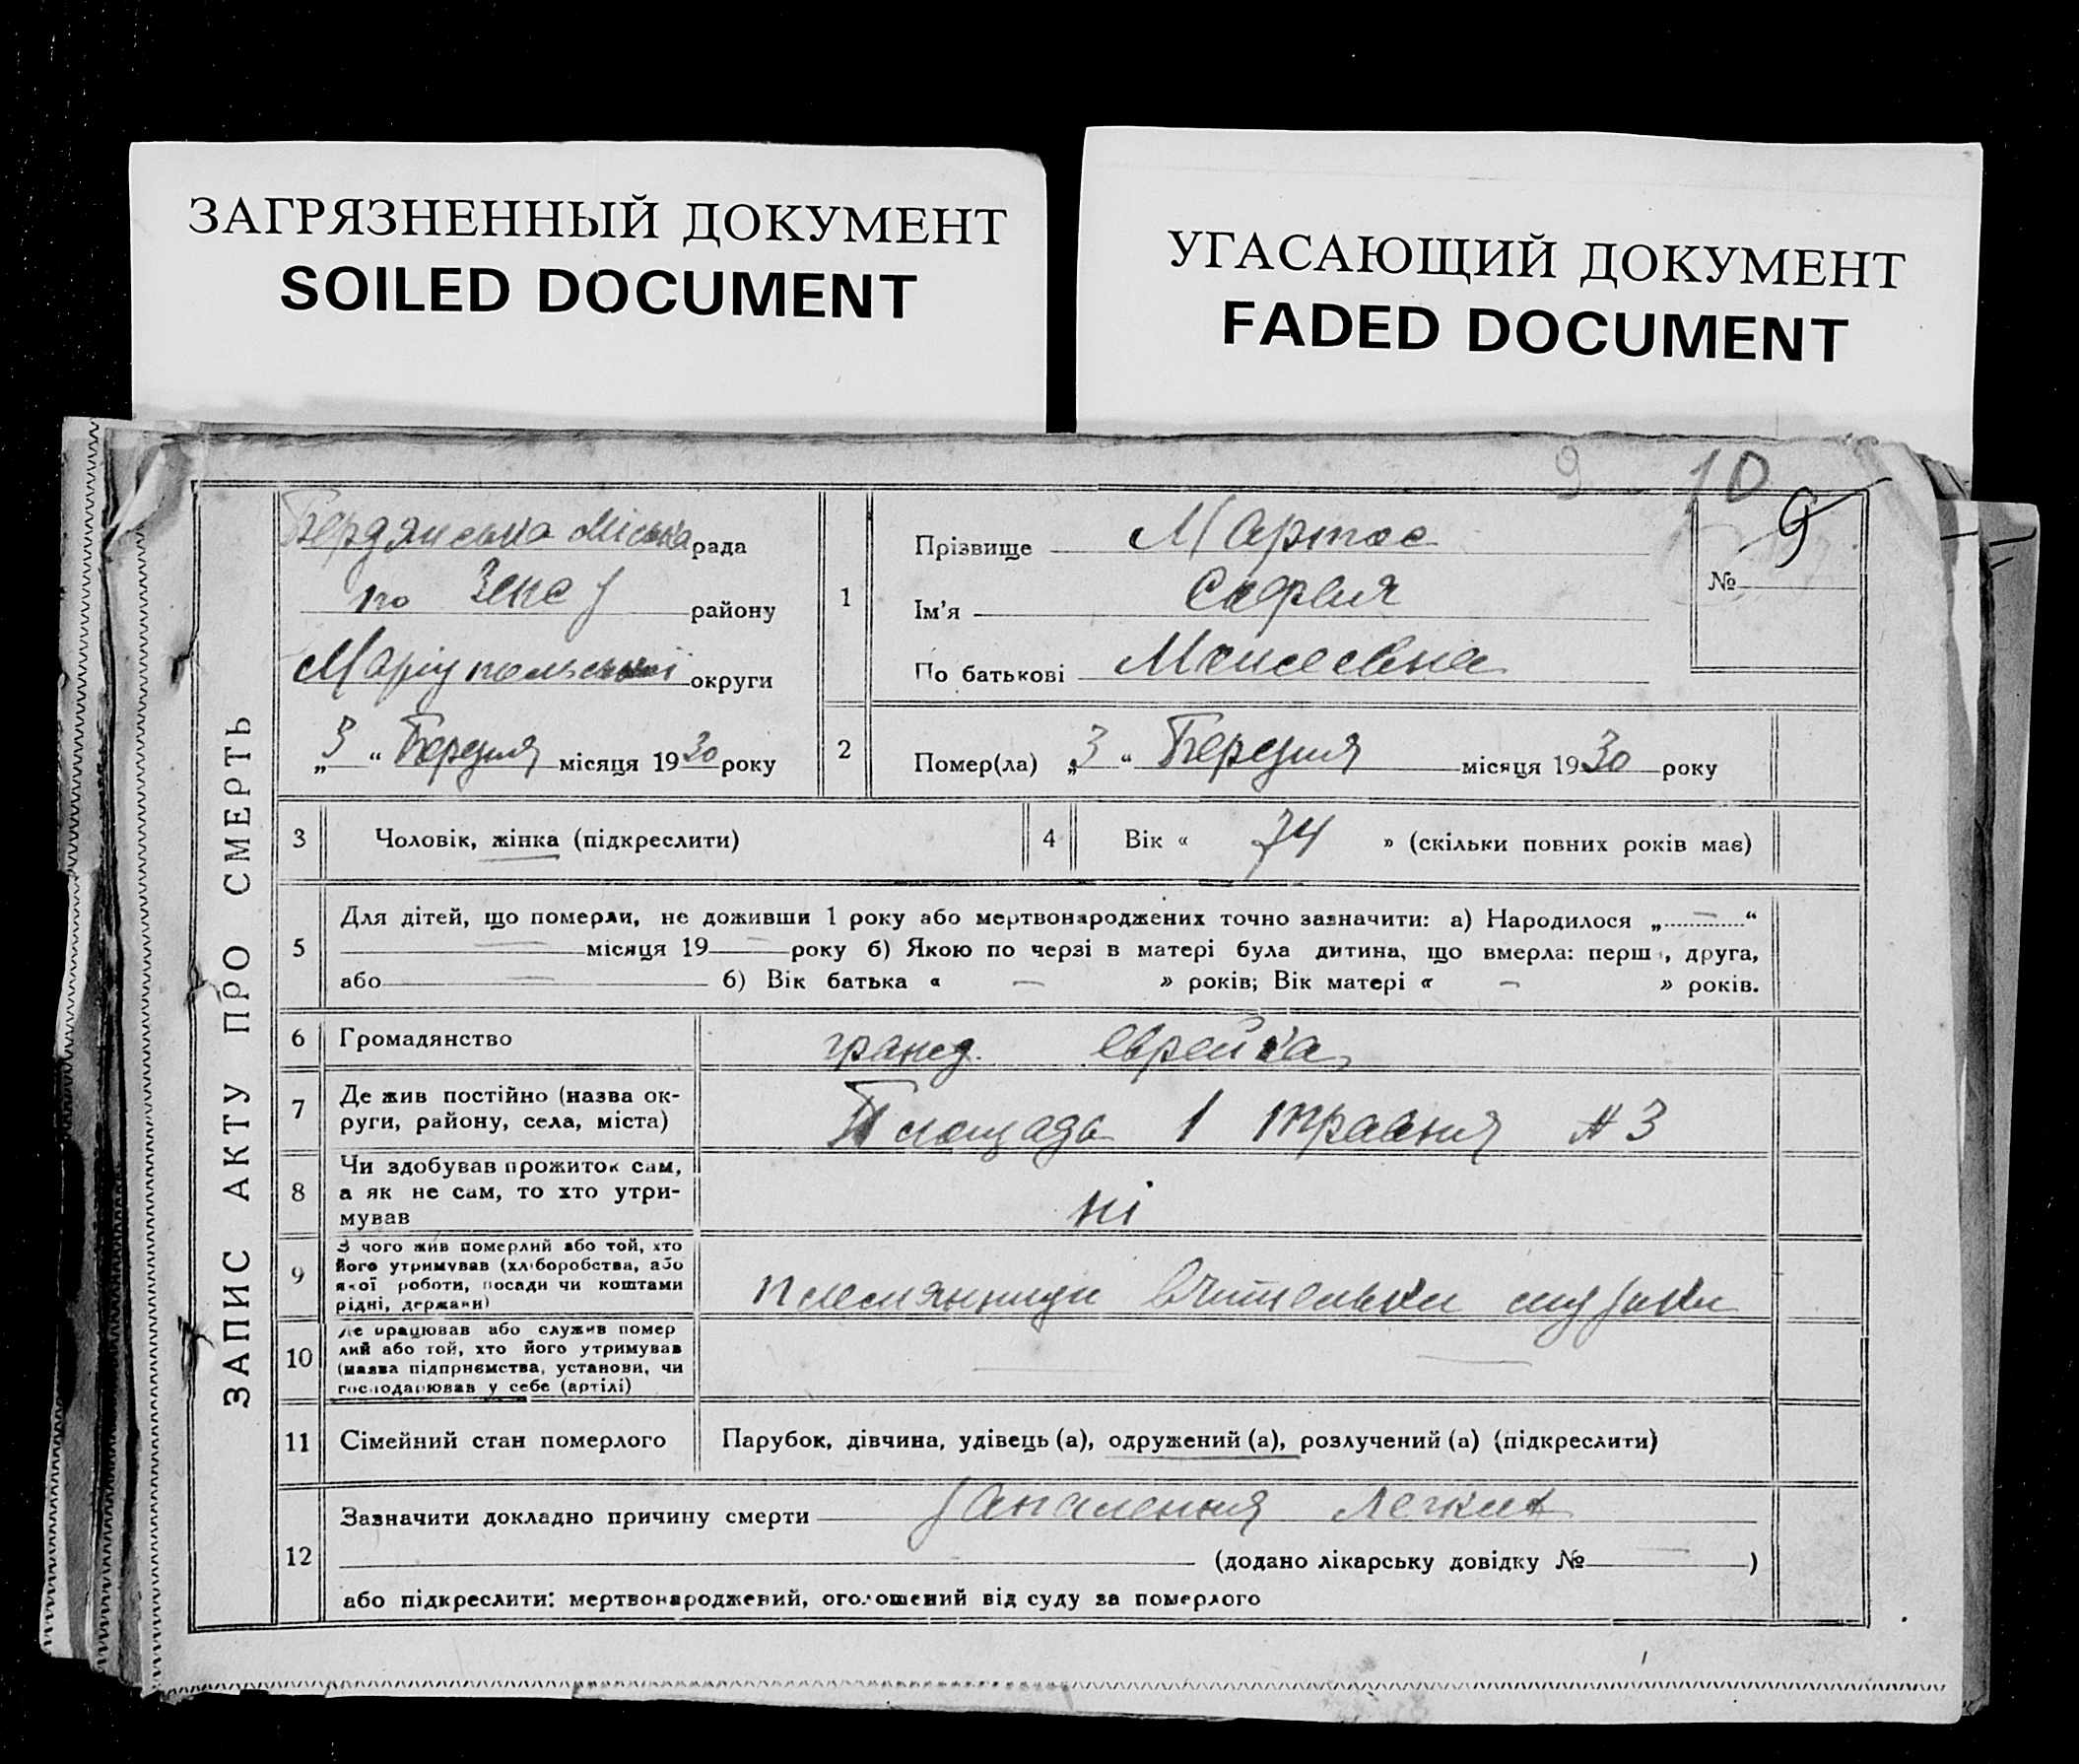 ЗАГРЯЗНЕННЫЙ ДОКУМЕНТ
SOILED DOCUMENT
УГАСАЮЩИЙ ДОКУМЕНТ
FADED DOCUMENT
9 10
ЗАПИС АКТУ ПРО СМЕРТЬ
Бердянська Міська рада
по району
Маріупольської округи
„3“ Березня місяця 1930 року
1
Прізвище Мартос
Ім'я Софья
По батькові Моисеевна
№ 9
2
Помер(ла) „3“ Березня місяця 1930 року
3 Чоловік, жінка (підкреслити)
4 Вік « 74 » (скільки повних років має)
5
Для дітей, що померли, не доживши 1 року або мертвонароджених точно зазначити: а) Народилося „ — “
— місяця 19 — року б) Якою по черзі в матері була дитина, що вмерла: перш , друга,
або — б) Вік батька « — » років; Вік матері « — » років.
6 Громадянство
еврейка
7 Де жив постійно (назва ок-
руги, району, села, міста)
Площадь 1 травня № 3
8
Чи здобував прожиток сам,
а як не сам, то хто утри-
мував
ні
9
З чого жив померлий або той, хто
його утримував (хліборобства, або
якої роботи, посади чи коштами
рідні, держави)
племянници вчительки музики
10
Де працював або служив помер
лий або той, хто його утримував
(назва підприємства, установи, чи
господарював у себе (артілі)
11 Сімейний стан померлого
Парубок, дівчина, удівець (а), одружений (а), розлучений (а) (підкреслити)
12
Зазначити докладно причину смерти запалення легких
(додано лікарську довідку № — )
або підкреслити: мертвонароджений, оголошений від суду за померлого